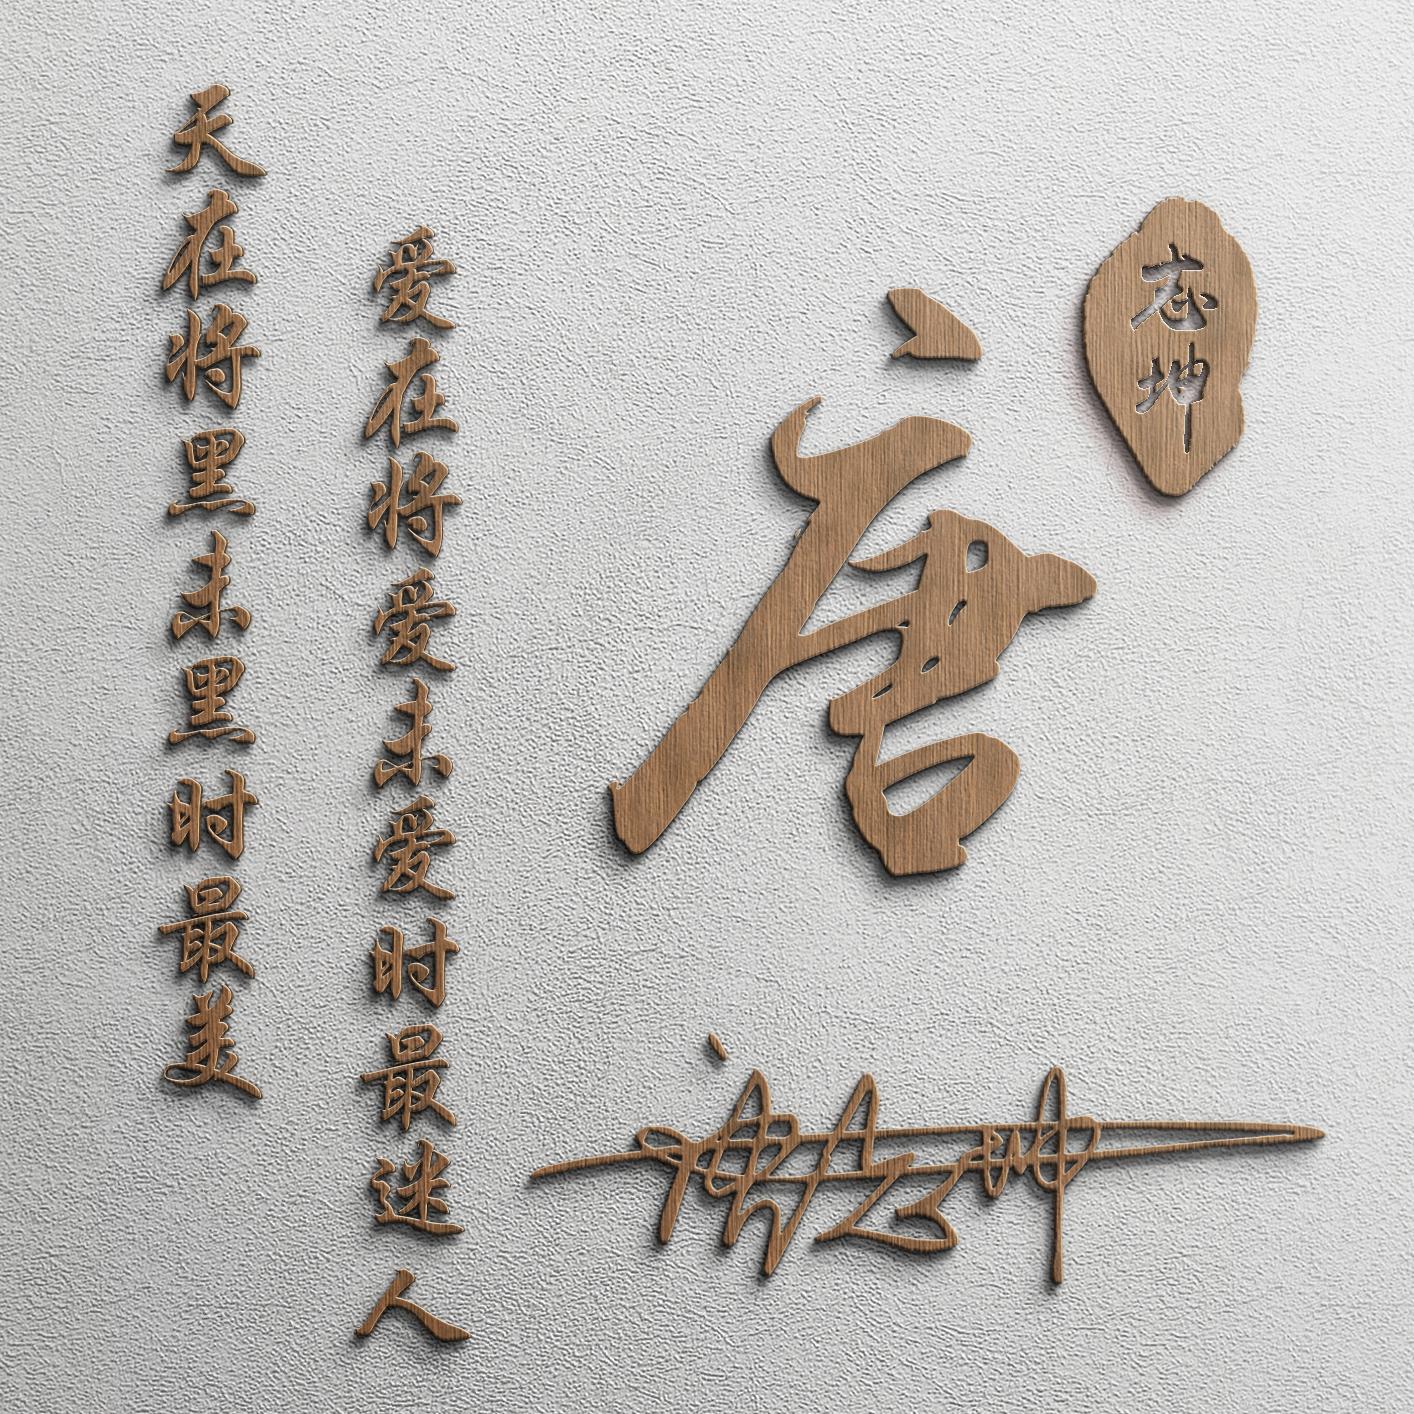 天在将黑未黑时最美
爱在将爱未爱时最迷人
唐
志坤
唐志坤